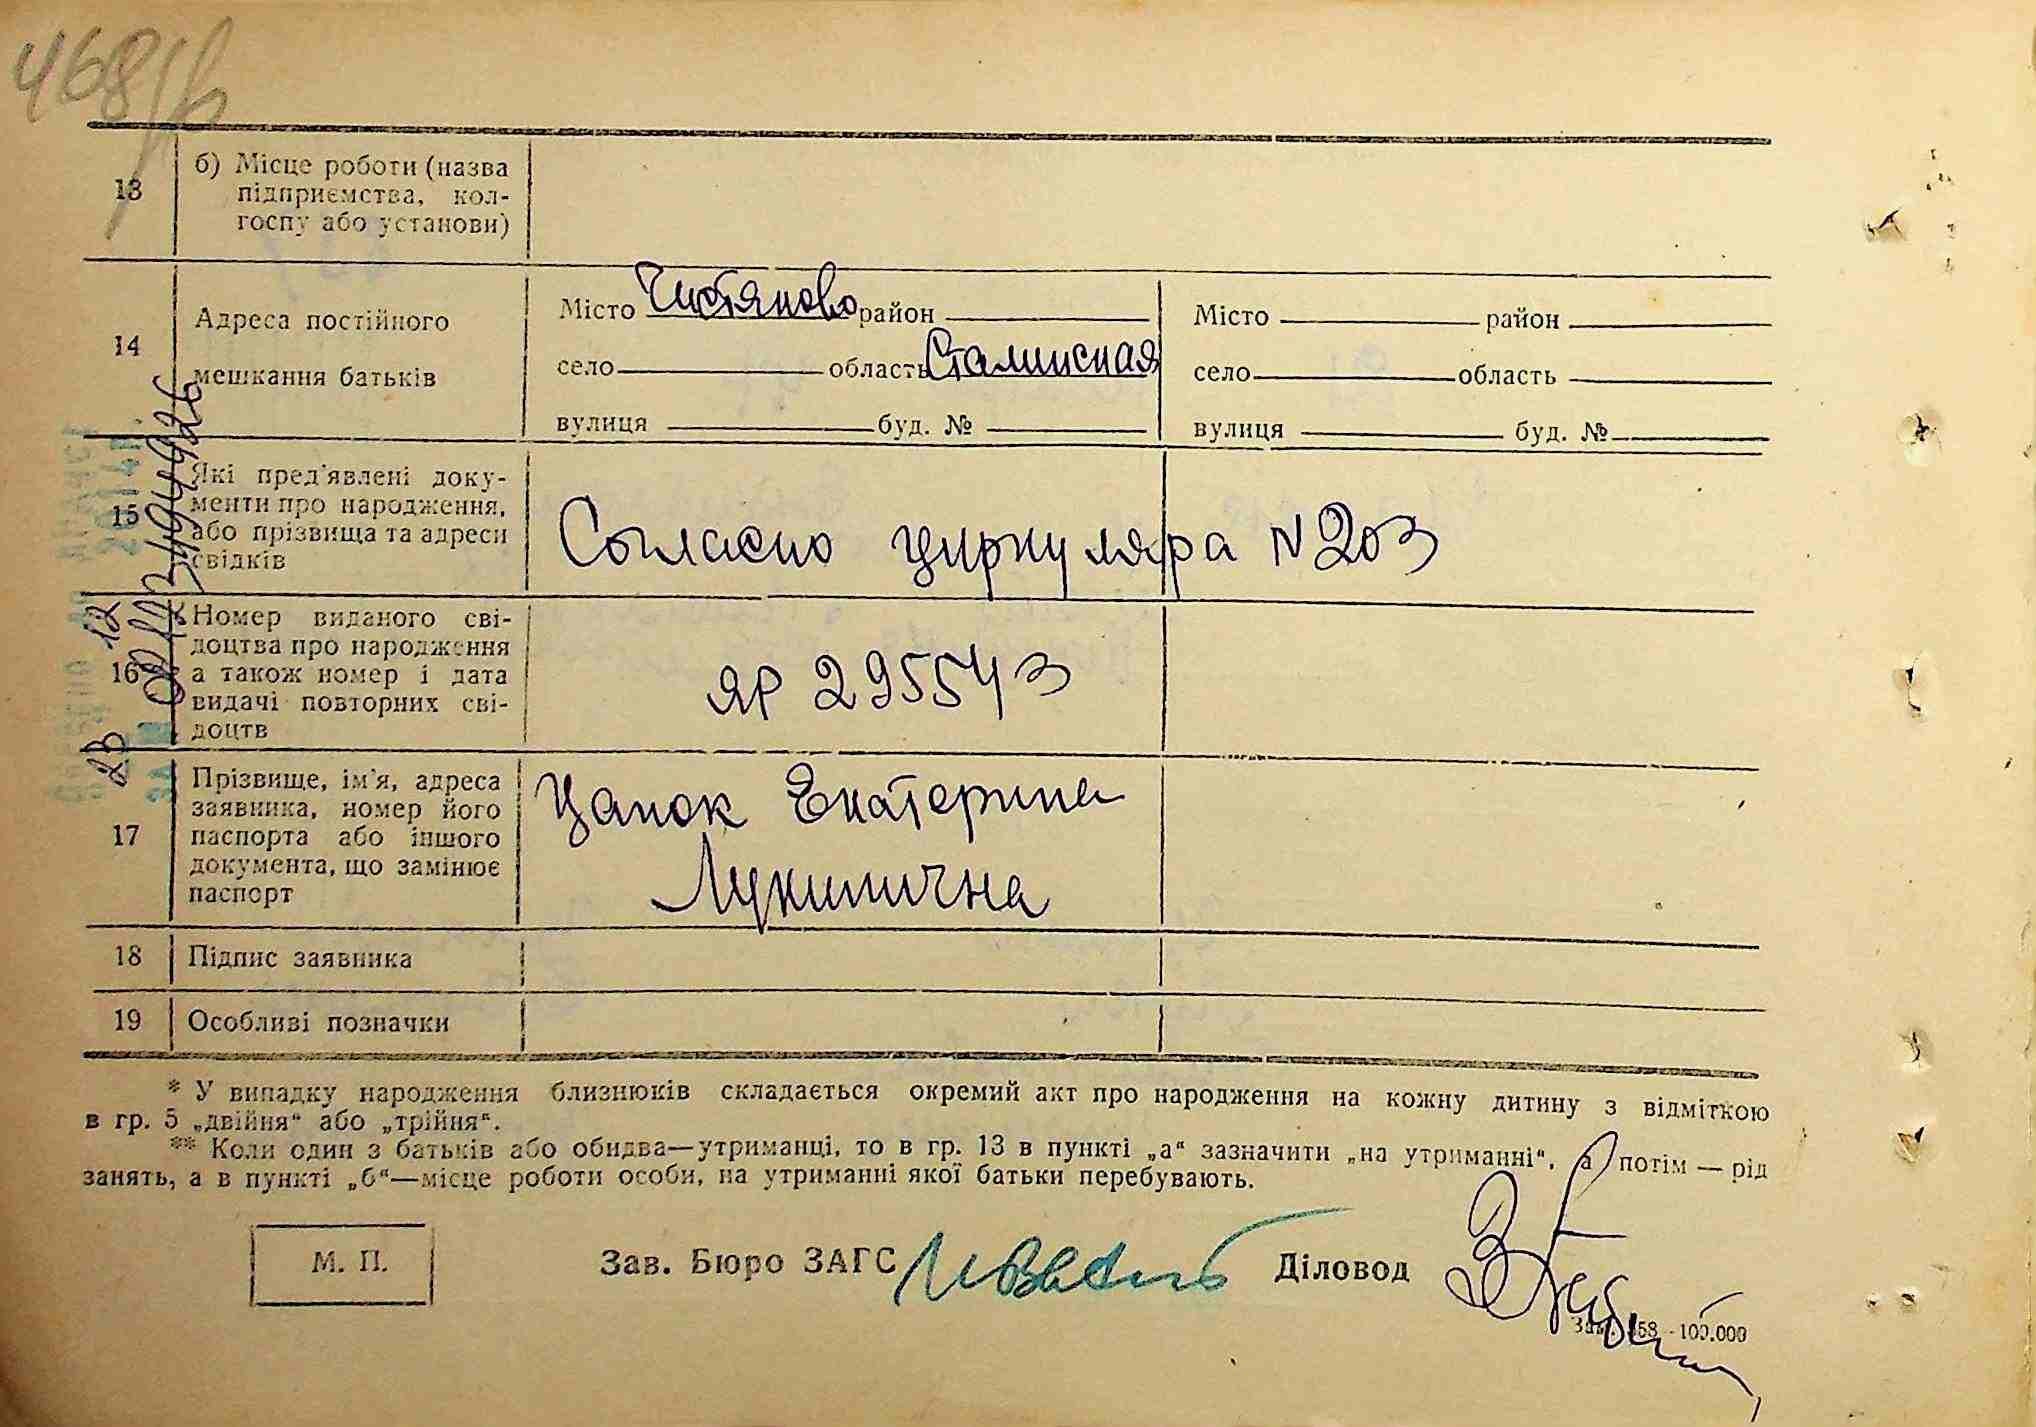 468
13
б) Місце роботи (назва
підприємства, кол-
госпу або установи)
14
Адреса постійного
мешкання батьків
Місто Чистяково район
село область Сталинская
вулиця буд. №
Місто район
село область
вулиця буд. №
15
Які пред'явлені доку-
менти про народження,
або прізвища та адреси
свідків
Согласно циркуляра N 203
16
Номер виданого сві-
доцтва про народження
а також номер і дата
видачі повторних сві-
доцтв
ЯР 295543
17
Прізвище, ім'я, адреса
заявника, номер його
паспорта або іншого
документа, що замінює
паспорт
Цапок Екатерина
Лукинична
18 Підпис заявника
19 Особливі позначки
* У випадку народження близнюків складається окремий акт про народження на кожну дитину з відміткою
в гр. 5 „двійня“ або „трійня“.
** Коли один з батьків або обидва—утриманці, то в гр. 13 в пункті „а“ зазначити „на утриманні“, а потім — рід
занять, а в пункті „б“—місце роботи особи, на утриманні якої батьки перебувають.
М. П.
Зав. Бюро ЗАГС
Діловод
100.000